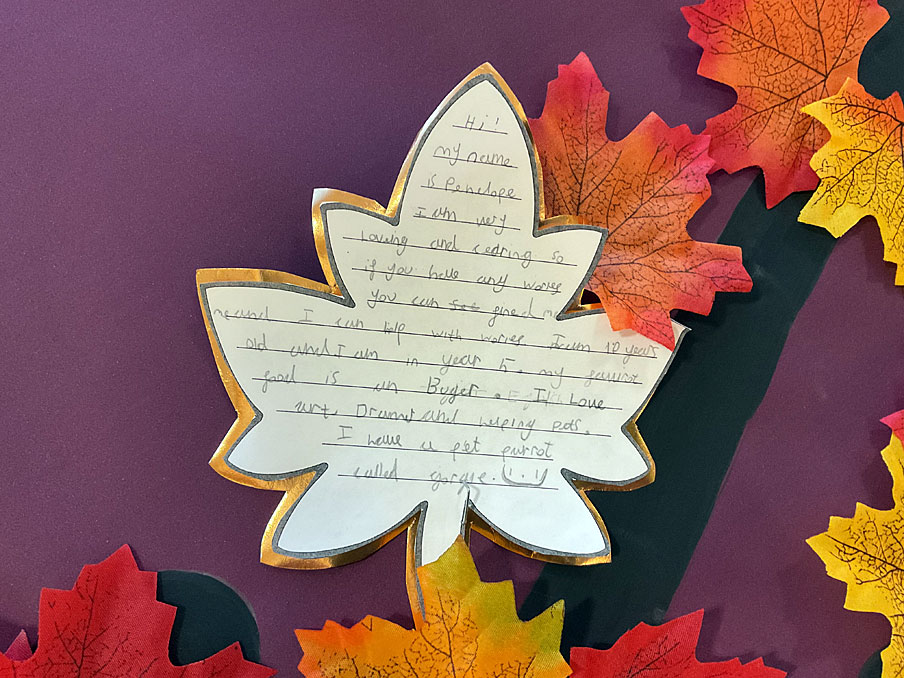 Hi!
my name
is Penelope
I am very
Loving and cedring so
if you have any worres
you can gined me
meand I can help with worres Iam 10 years
old and I am in year 5. my favurot
food is an Buger. I Love
art. Drama and helping pets.
I have a pet parrot
called gorgie.